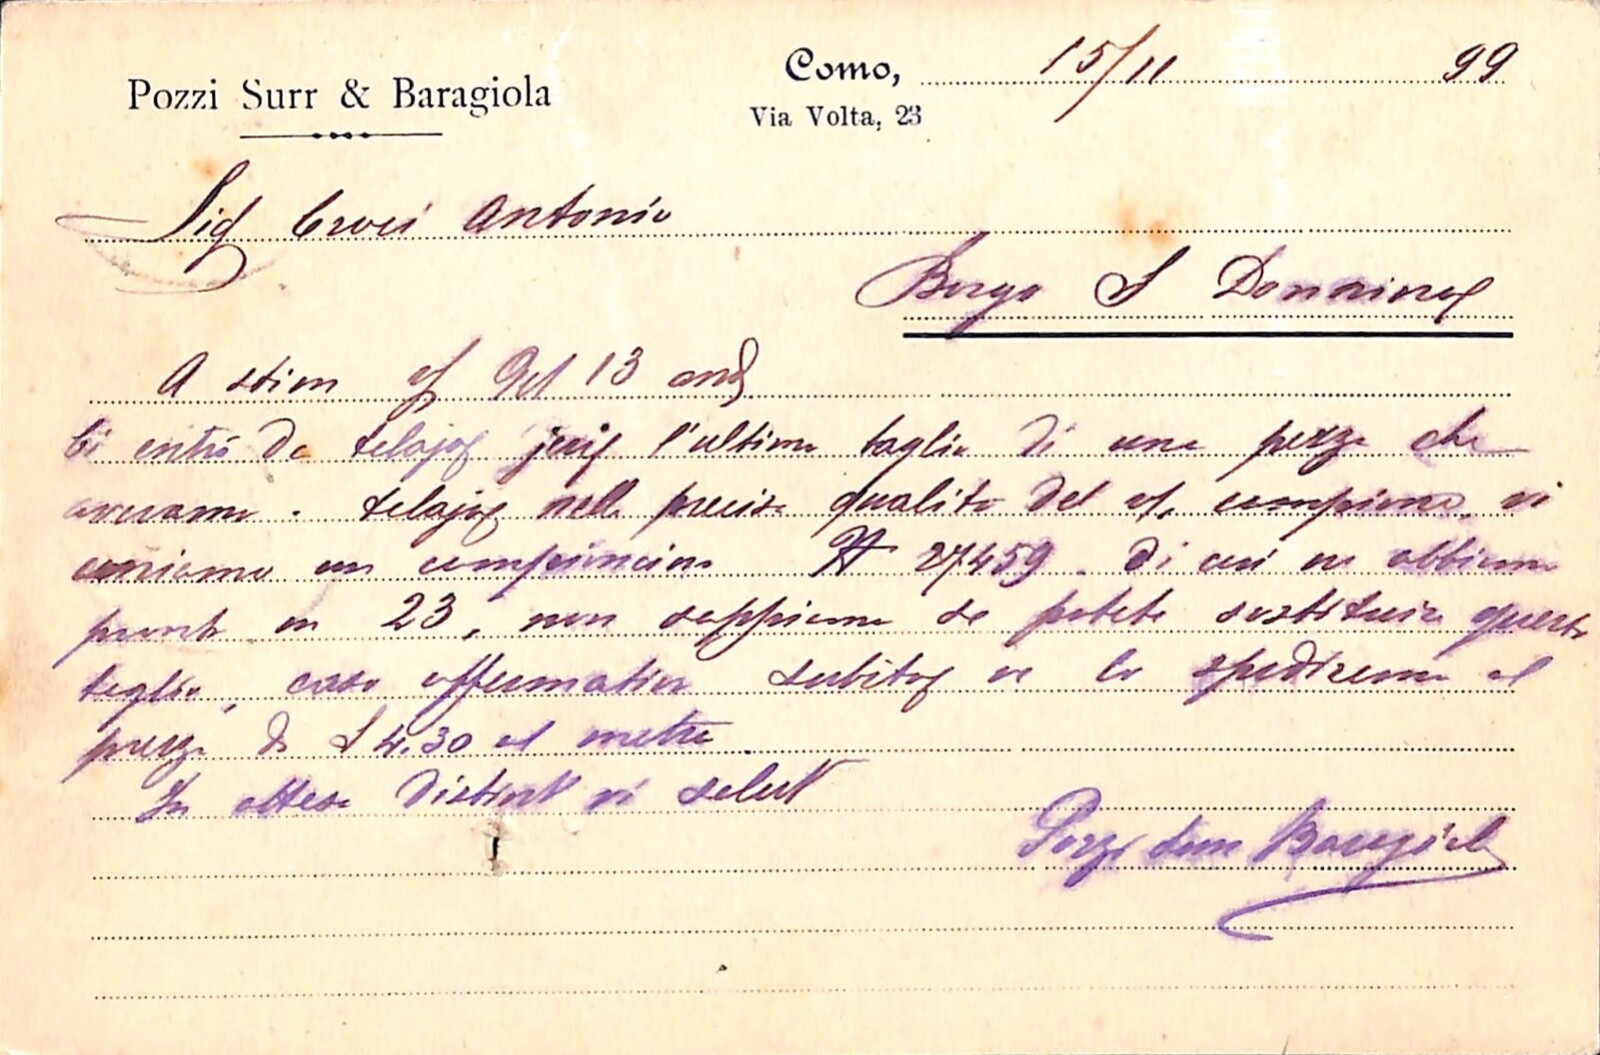 Pozzi Surr & Baragiola
Como, 15/11 99
Via Volta, 23
Sig Croci Antonio
Borgo S Donnino
A stim 13 and
Ci entrò da l'ultimo taglio di una pezza che
avevamo. nella precisa qualità del campione, vi
uniamo un campioncino N 27459. di cui ne abbiamo
pronto m 23, non sappiamo se potete sostituire questo
taglio, caso affermativo subito ve lo spediremo al
prezzo di £ 4.30 al metro.
In attesa vi salut
Pozzi Surr Baragiola